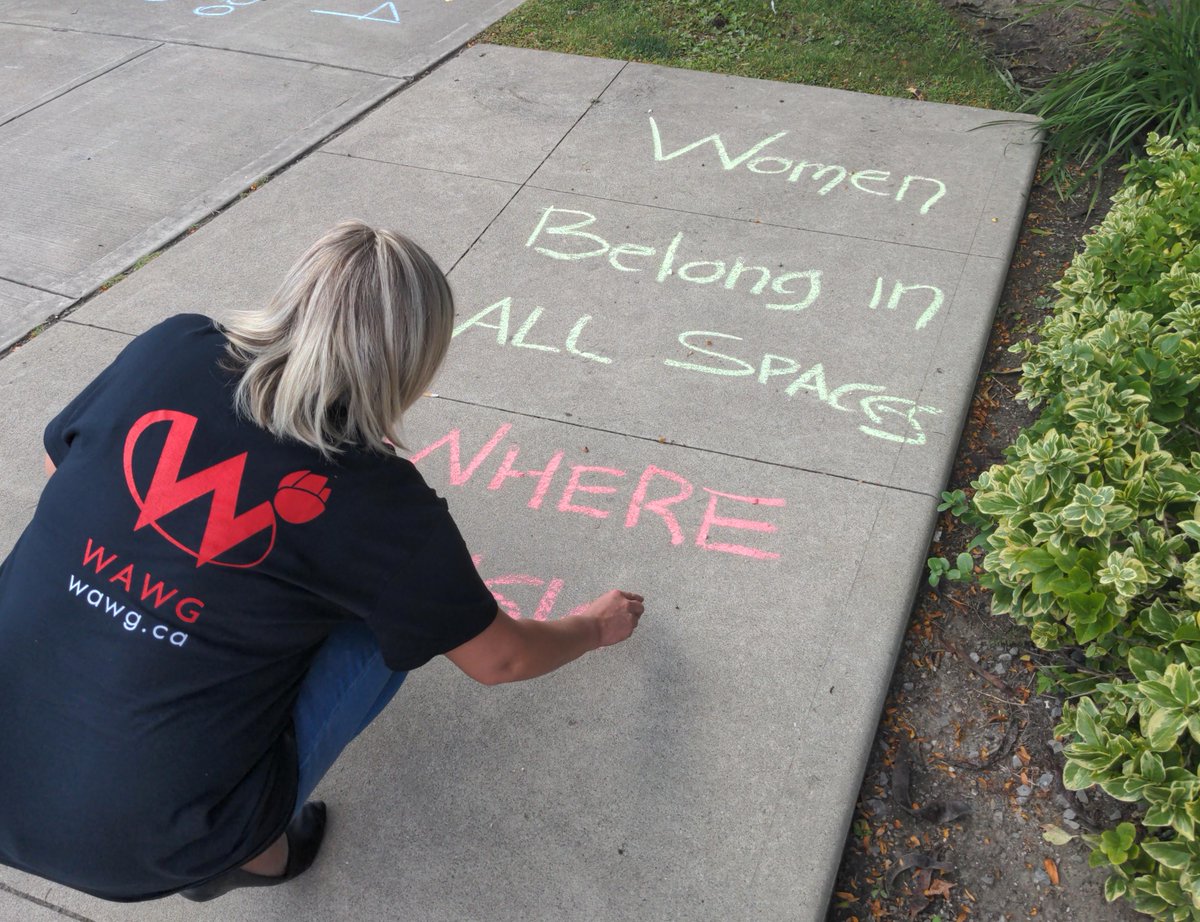 Women
Belong in
ALL SPACES
WHERE
WAWG
wawg.ca